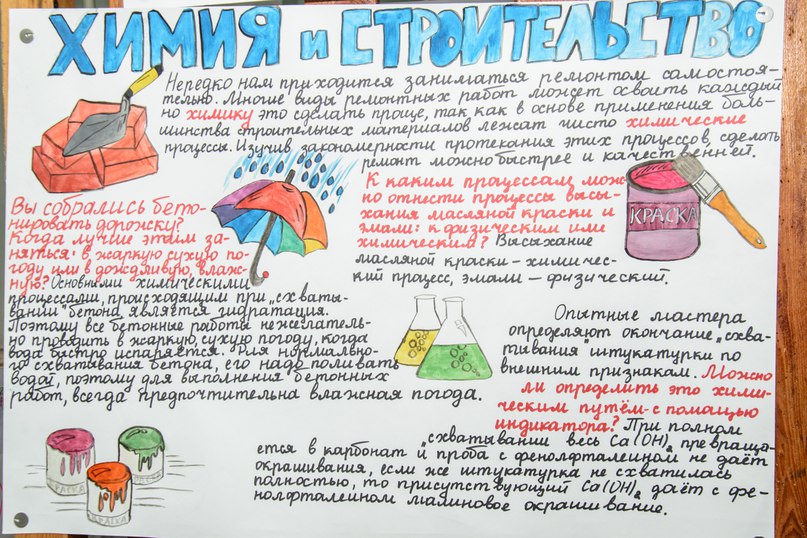 ХИМИЯ и СТРОИТЕЛЬСТВО
Нередко нам приходится заниматься ремонтом самостоя-
тельно. Многие виды ремонтных работ может освоить каждый
но химику это сделать проще, так как в основе применения боль-
шинства строительных материалов лежат чисто химические
процессы. Изучив закономерности протекания этих процессов, сделать
ремонт можно быстрее и качественней.
Вы собрались бето-
нировать дорожку?
Когда лучше этим за-
няться: в жаркую сухую по-
году или в дождливую, влаж-
ную? Основными химическими
процессами, происходящим при „схваты-
вании" бетона, является гидратация.
Поэтому все бетонные работы нежелатель-
но проводить в жаркую, сухую погоду, когда
вода быстро испаряется. Для нормально-
го схватывания бетона, его надо поливать
водой, поэтому для выполнения бетонных
работ, всегда предпочтительна влажная погода.
К каким процессам мож-
но отнести процессы высы-
хания масляной краски и
эмали: к физическим или
химическим? Высыхание
масляной краски – химичес-
кий процесс, эмали – физический.
КРАСКА
Опытные мастера
определяют окончание „схва-
тывания" штукатурки по
внешним признакам. Можно
ли определить это хими-
ческим путём - с помощью
индикатора? При полном
„схватывании весь Ca(OH)₂ превраща-
ется в карбонат и проба с фенолфталеином не даёт
окрашивания, если же штукатурка не схватилась
полностью, то присутствующий Ca(OH)₂ даёт с фе-
нолфталеином малиновое окрашивание.
КРАСКА
КРАСКА
КРАСКА